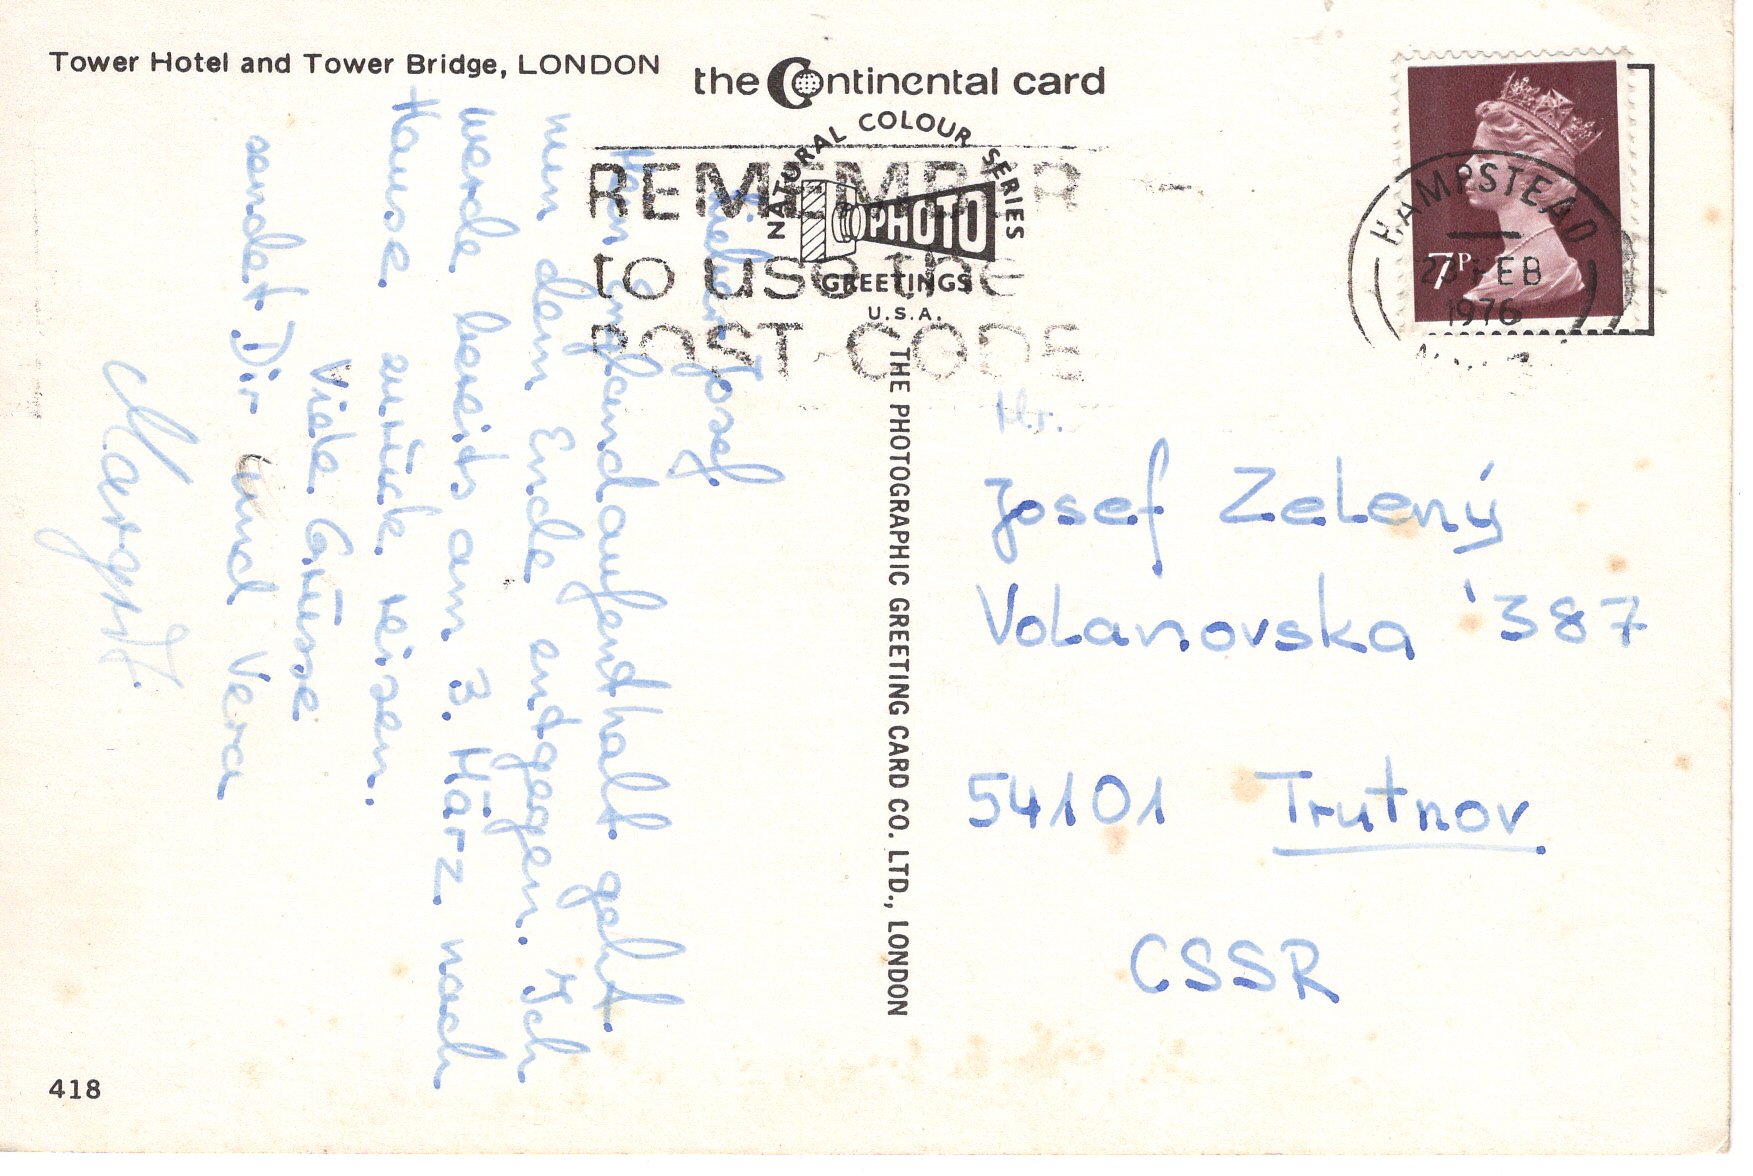 Tower Hotel and Tower Bridge, LONDON
the Continental card
NATURAL COLOUR SERIES
PHOTO
GREETINGS
U.S.A.
REMEMBER
to use the
POST CODE
HAMPSTEAD
FEB
1976
7P
Lieber Josef
Mein Englandaufenthalt geht
nun dem Ende entgegen. Ich
werde bereits am 3. März nach
Hause zurück reisen.
Viele Grüsse
sendet Dir und Vera
Margrit
THE PHOTOGRAPHIC GREETING CARD CO. LTD., LONDON
Hr.
Josef Zelený
Volanovska 387
54101 Trutnov
CSSR
418